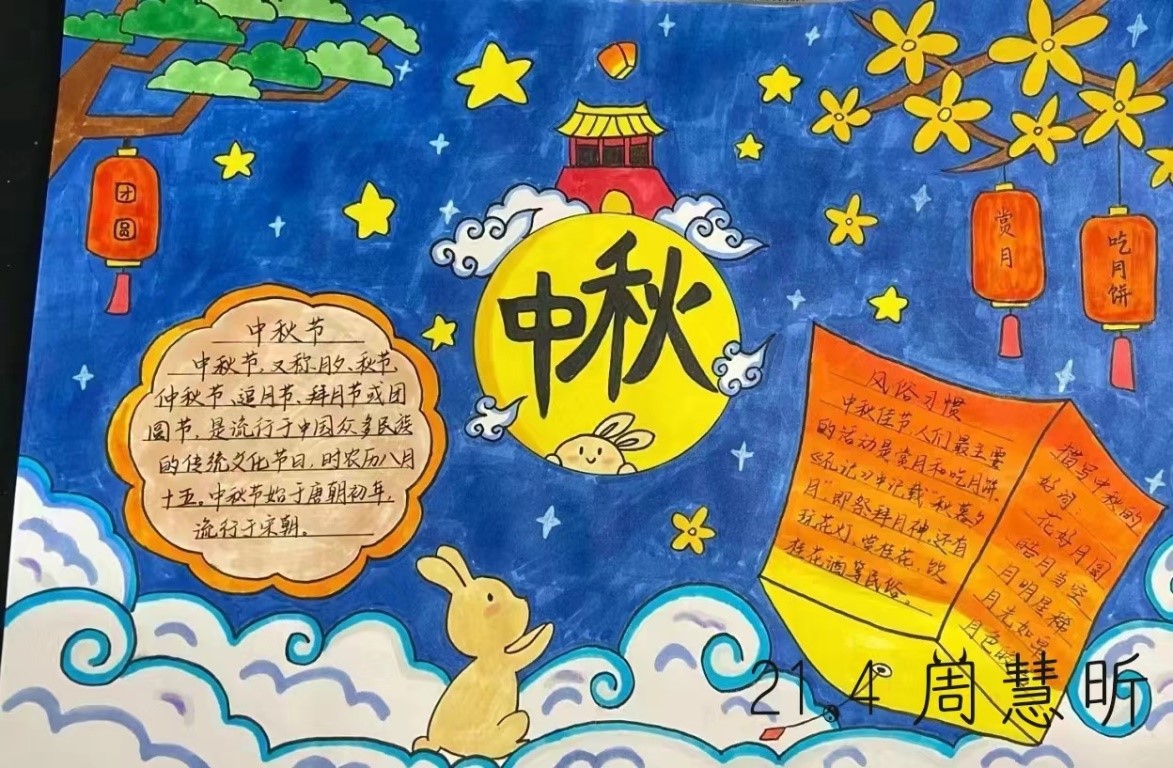 团
圆
中秋
赏
月
吃
月
饼
中秋节
中秋节,又称月夕、秋节、
仲秋节、逗月节、拜月节或团
圆节,是流行于中国众多民族
的传统文化节日,时农历八月
十五。中秋节始于唐朝初年,
流行于宋朝。
风俗习惯
中秋佳节人们最主要
的活动是赏月和吃月饼。
中记载"秋暮夕
月"即祭拜月神,还有
玩花灯、赏桂花、饮
桂花酒等民俗。
描写中秋的
好词:
花好月圆
皓月当空
月明星稀
月光如
月色
21.4周慧昕